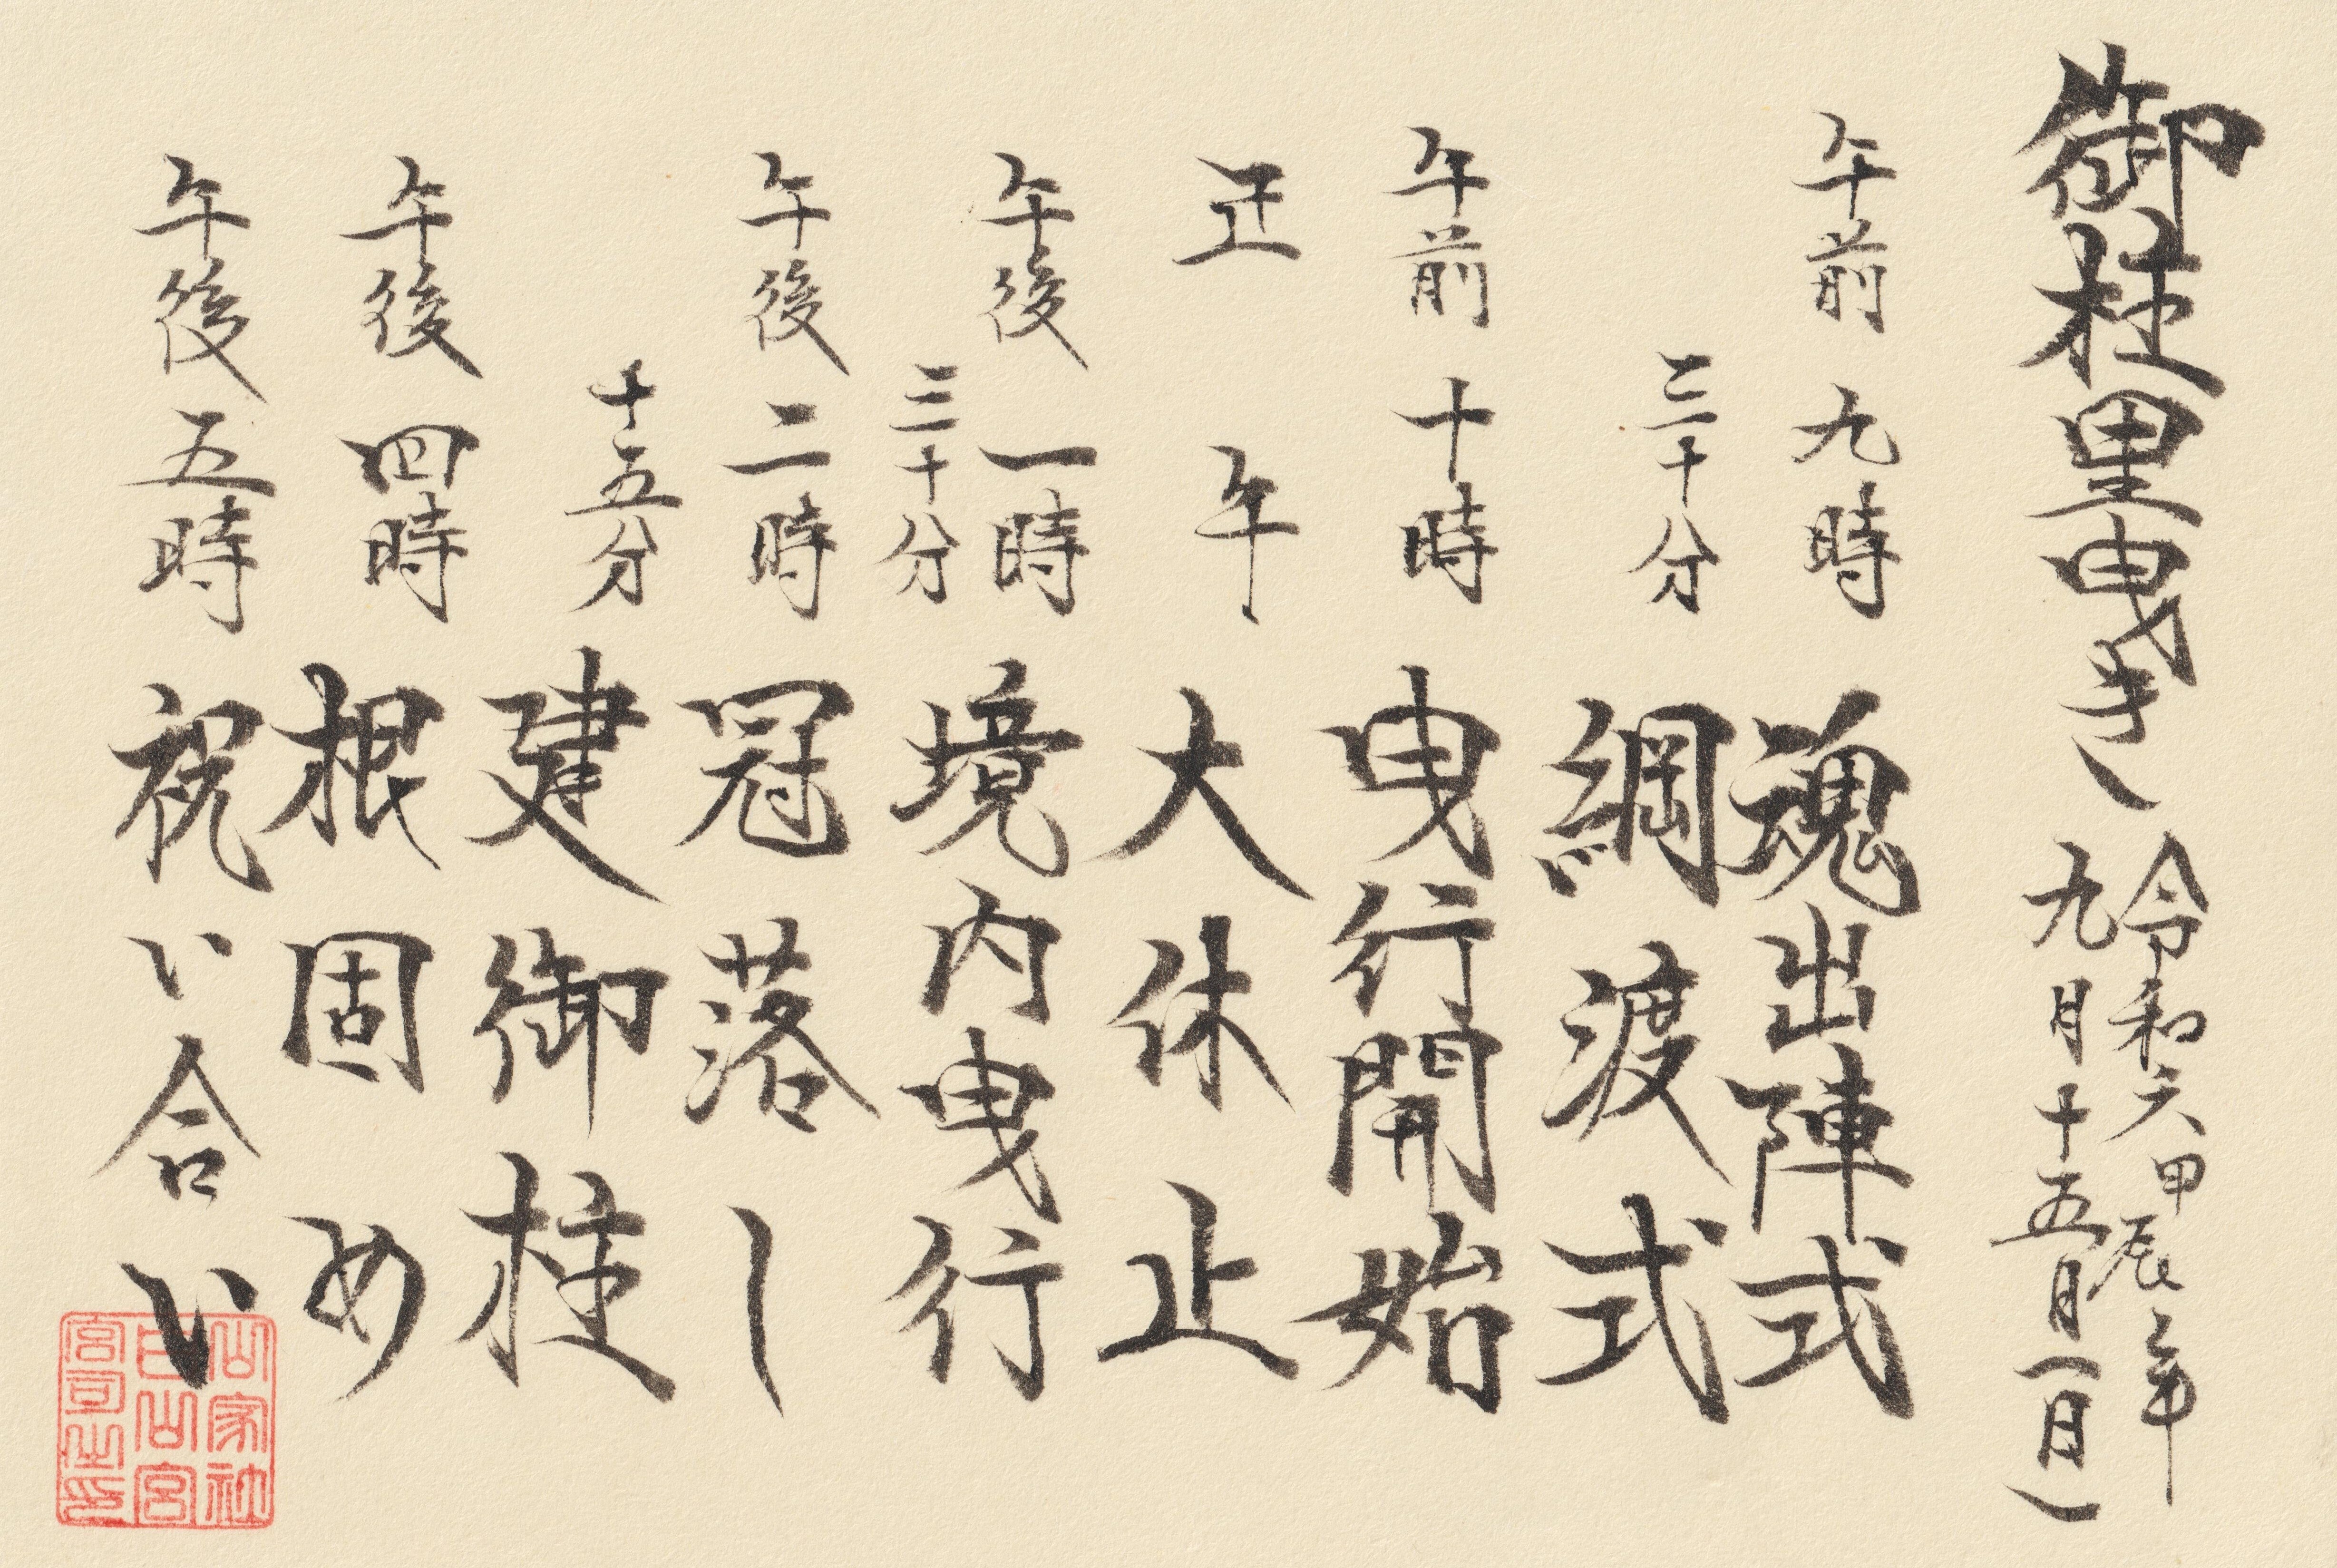 御柱里曳き
令和六甲辰年
九月十五日(日)
午前九時 魂出陣式
三十分 綱渡式
午前十時 曳行開始
正午 大休止
午後一時
三十分 境内曳行
午後二時 冠落し
十五分 建御柱
午後四時 根固め
午後五時 祝い合い
山家社
白山宮
宮司之印